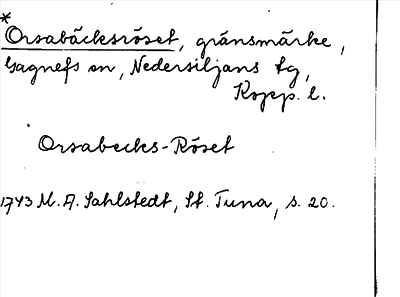 *
Orsabäcksröset, gränsmärke,
Gagnefs sn, Nedersiljans tg,
Kopp. l.
Orsabecks-Röset
1743 M. A. Sahlstedt, St. Tuna, s. 20.